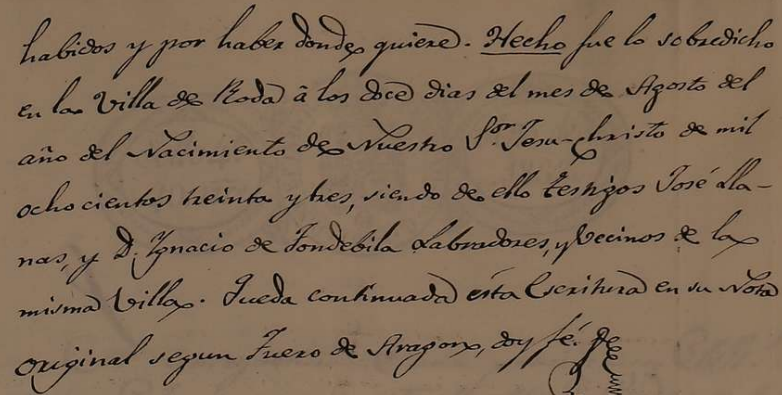 habidos y por haber donde quiera. Hecho fue lo sobredicho
en la Villa de Roda à los doce dias del mes de Agosto del
año del Nacimiento de Nuestro Sor. Jesu-christo de mil
ochocientos treinta y tres, siendo de ello testigos José Lla-
nas, y D. Ygnacio de Fondebila Labradores, y Vecinos de la
misma Villa. Queda continuada esta Escritura en su Nota
original segun Fuero de Aragon, doy fé.